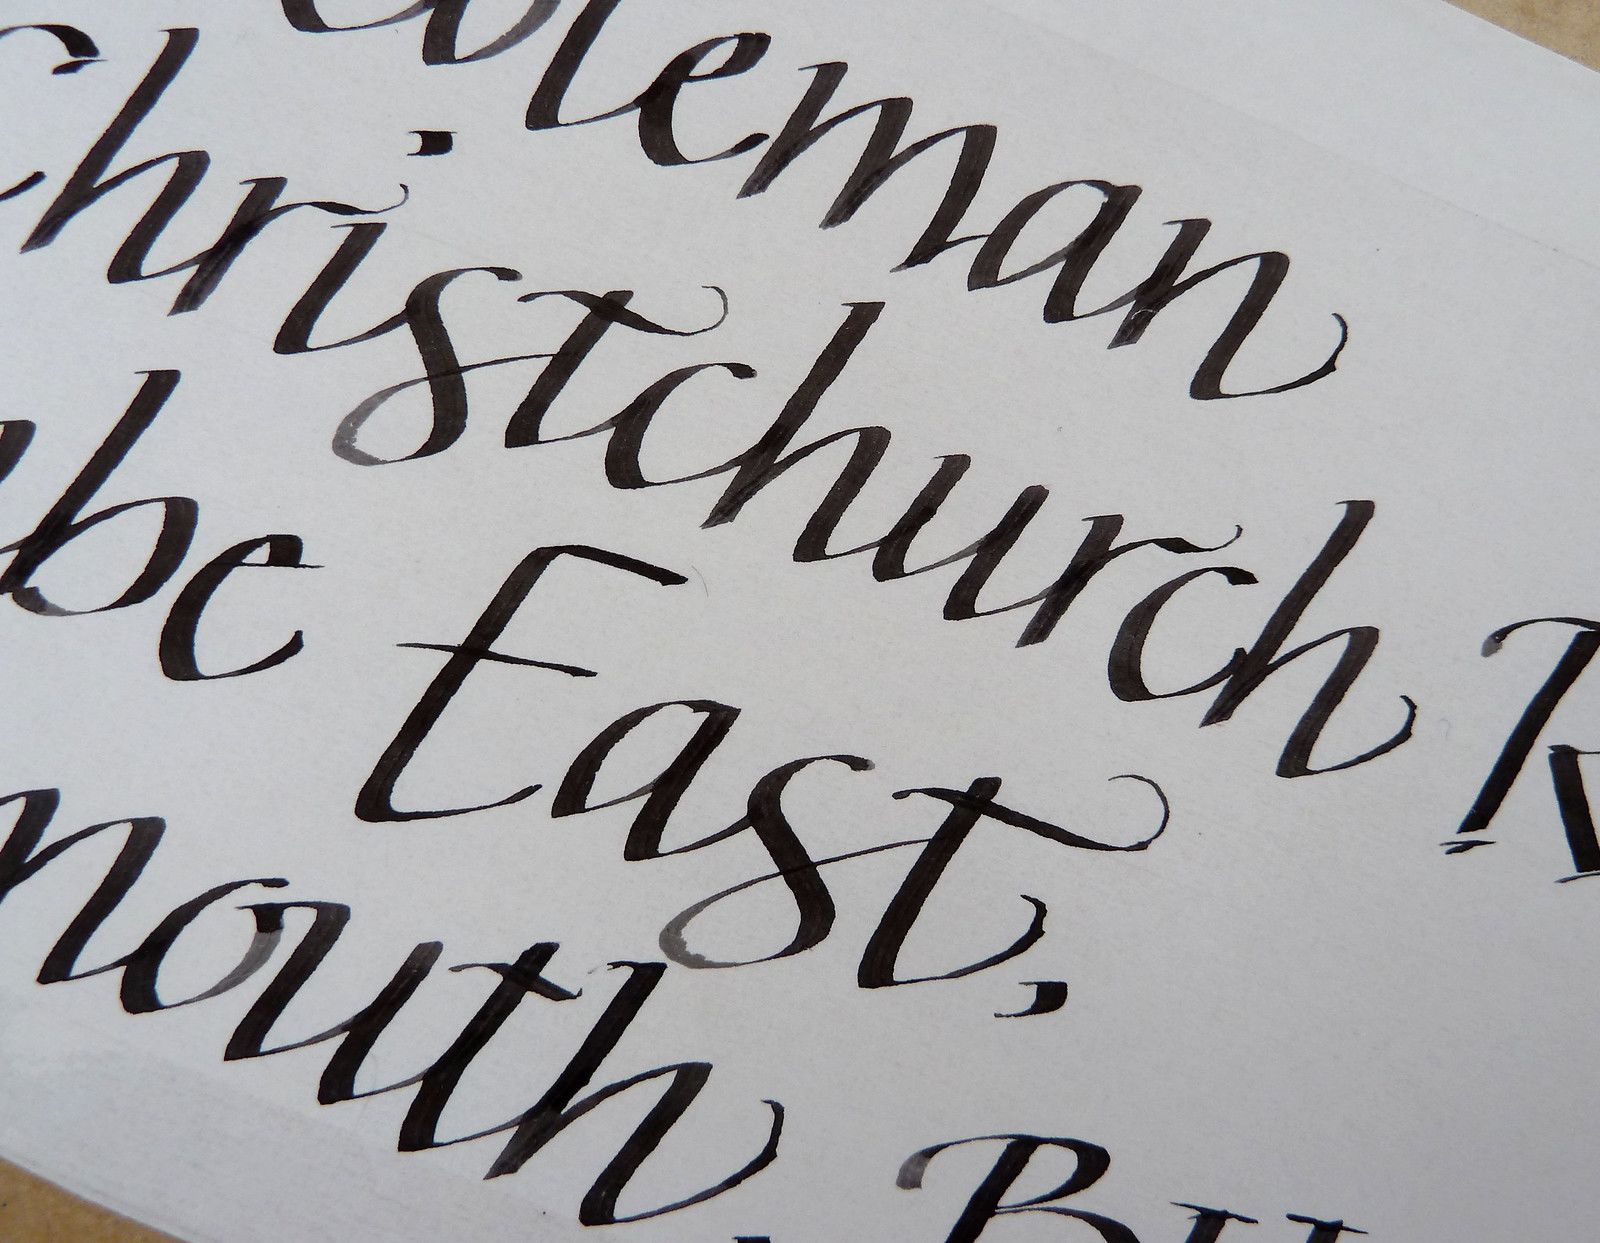 Coleman
Christchurch R
be East,
mouth, BH